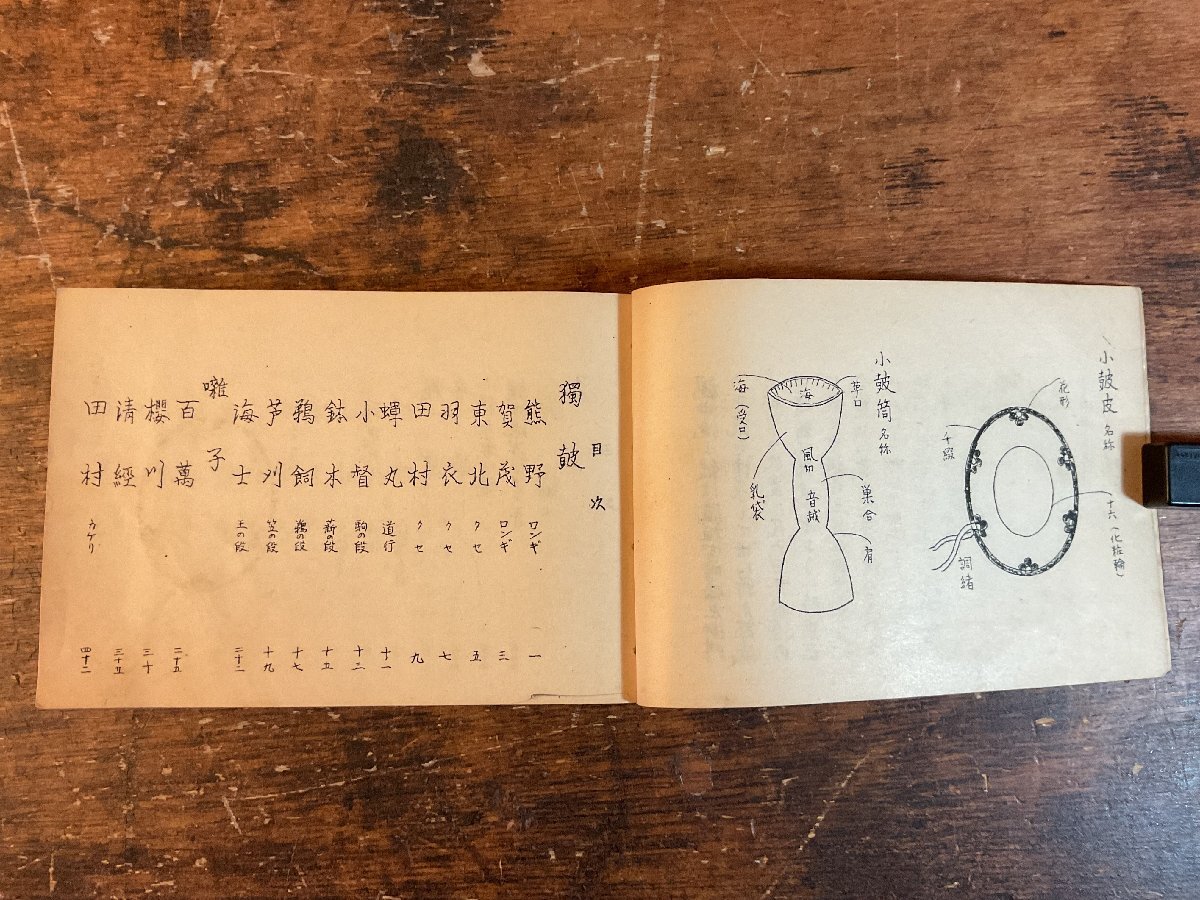 小鼓皮 名称
花形
千鳥
十六(化粧輪)
調緒
小鼓筒 名称
革口
海
海(受口)
乳袋
風切
音越
巣合
肩
目次
獨鼓
熊野 ロンギ 一
賀茂 ロンギ 三
東北 クセ 五
羽衣 クセ 七
田村 クセ 九
蝉丸 道行 十一
小督 駒の段 十三
鉢木 薪の段 十五
鵜飼 鵜の段 十七
芦刈 笠の段 十九
海士 玉の段
囃子
百萬 二十五
櫻川 三十
清經 三十五
田村